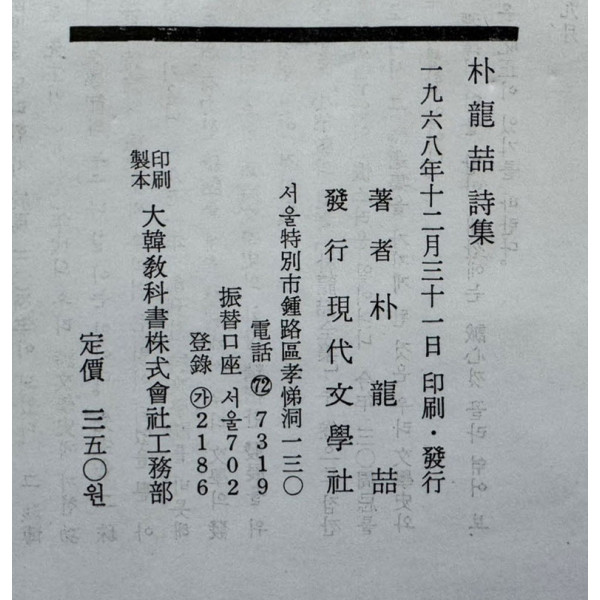 朴龍喆詩集
一九六八年十二月三十一日 印刷·發行
著者 朴龍喆
發行 現代文學社
서울特別市鍾路區孝悌洞一三〇
電話 ㊆ 7319
振替口座 서울702
登錄 ㉮2186
印刷
製本 大韓敎科書株式會社工務部
定價 三五〇원